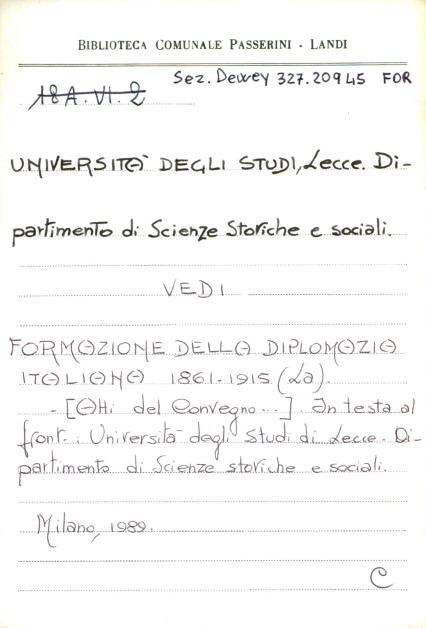 BIBLIOTECA COMUNALE PASSERINI - LANDI
Sez. Dewey 327.20945 FOR
18A.VI.2
UNIVERSITÀ DEGLI STUDI, Lecce. Di-
partimento di Scienze Storiche e sociali.
VEDI
FORMAZIONE DELLA DIPLOMAZIA
ITALIANA 1861-1915 (La).
- [Atti del Convegno...]. In testa al
front.: Università degli Studi di Lecce. Di-
partimento di Scienze storiche e sociali.
Milano, 1989.
C